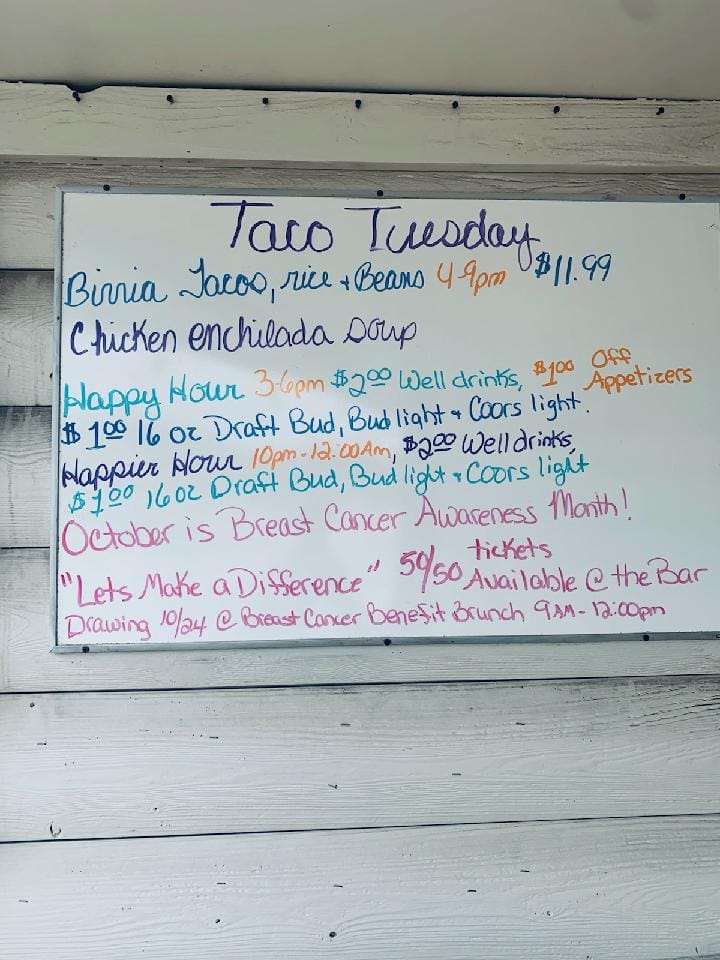 Taco Tuesday
Birria Tacos, rice + Beans 4-9pm $11.99
Chicken enchilada Soup
Happy Hour 3-6pm $2.00 Well drinks, $1.00 Off Appetizers
$1.00 16 oz Draft Bud, Bud light + Coors light.
Happier Hour 10pm-12:00Am, $2.00 Well drinks,
$1.00 16 oz Draft Bud, Bud light + Coors light
October is Breast Cancer Awareness Month!
"Lets Make a Difference" 50/50 tickets Available @ the Bar
Drawing 10/24 @ Breast Cancer Benefit Brunch 9AM-12:00pm